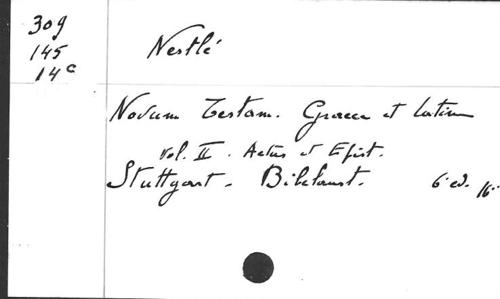 309
145
14c
Nestlé
Novum Testam. Graece et Latine
Vol. II. Actus et Epist.
Stuttgart. Bibelanst. 6 ed. 16°